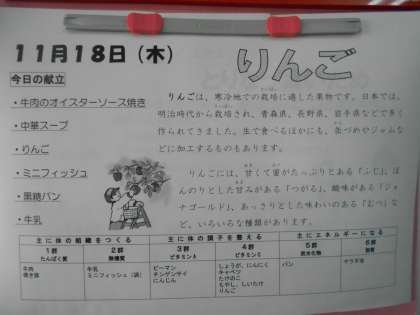 11月18日（木）
りんご
今日の献立
・牛肉のオイスターソース焼き
・中華スープ
・りんご
・ミニフィッシュ
・黒糖パン
・牛乳
りんごは、寒冷地での栽培に適した果物です。日本では、
明治時代から栽培され、青森県、長野県、岩手県などで多く
作られてきました。生で食べるほかにも、缶づめやジャムな
どに加工するものもあります。
りんごには、甘くて蜜がたっぷりとある「ふじ」、ほ
んのりとした甘みがある「つがる」、酸味がある「ジョ
ナゴールド」、あっさりとした味わいのある「むつ」な
ど、いろいろな種類があります。
主に体の組織をつくる 主に体の調子を整える 主にエネルギーになる
1群 2群 3群 4群 5群 6群
たんぱく質 無機質 ビタミンA ビタミンC 炭水化物 脂肪
牛肉 牛乳 ピーマン しょうが、にんにく パン
焼き豚 ミニフィッシュ（袋） チンゲンサイ キャベツ
にんじん たけのこ
もやし、しいたけ
りんご